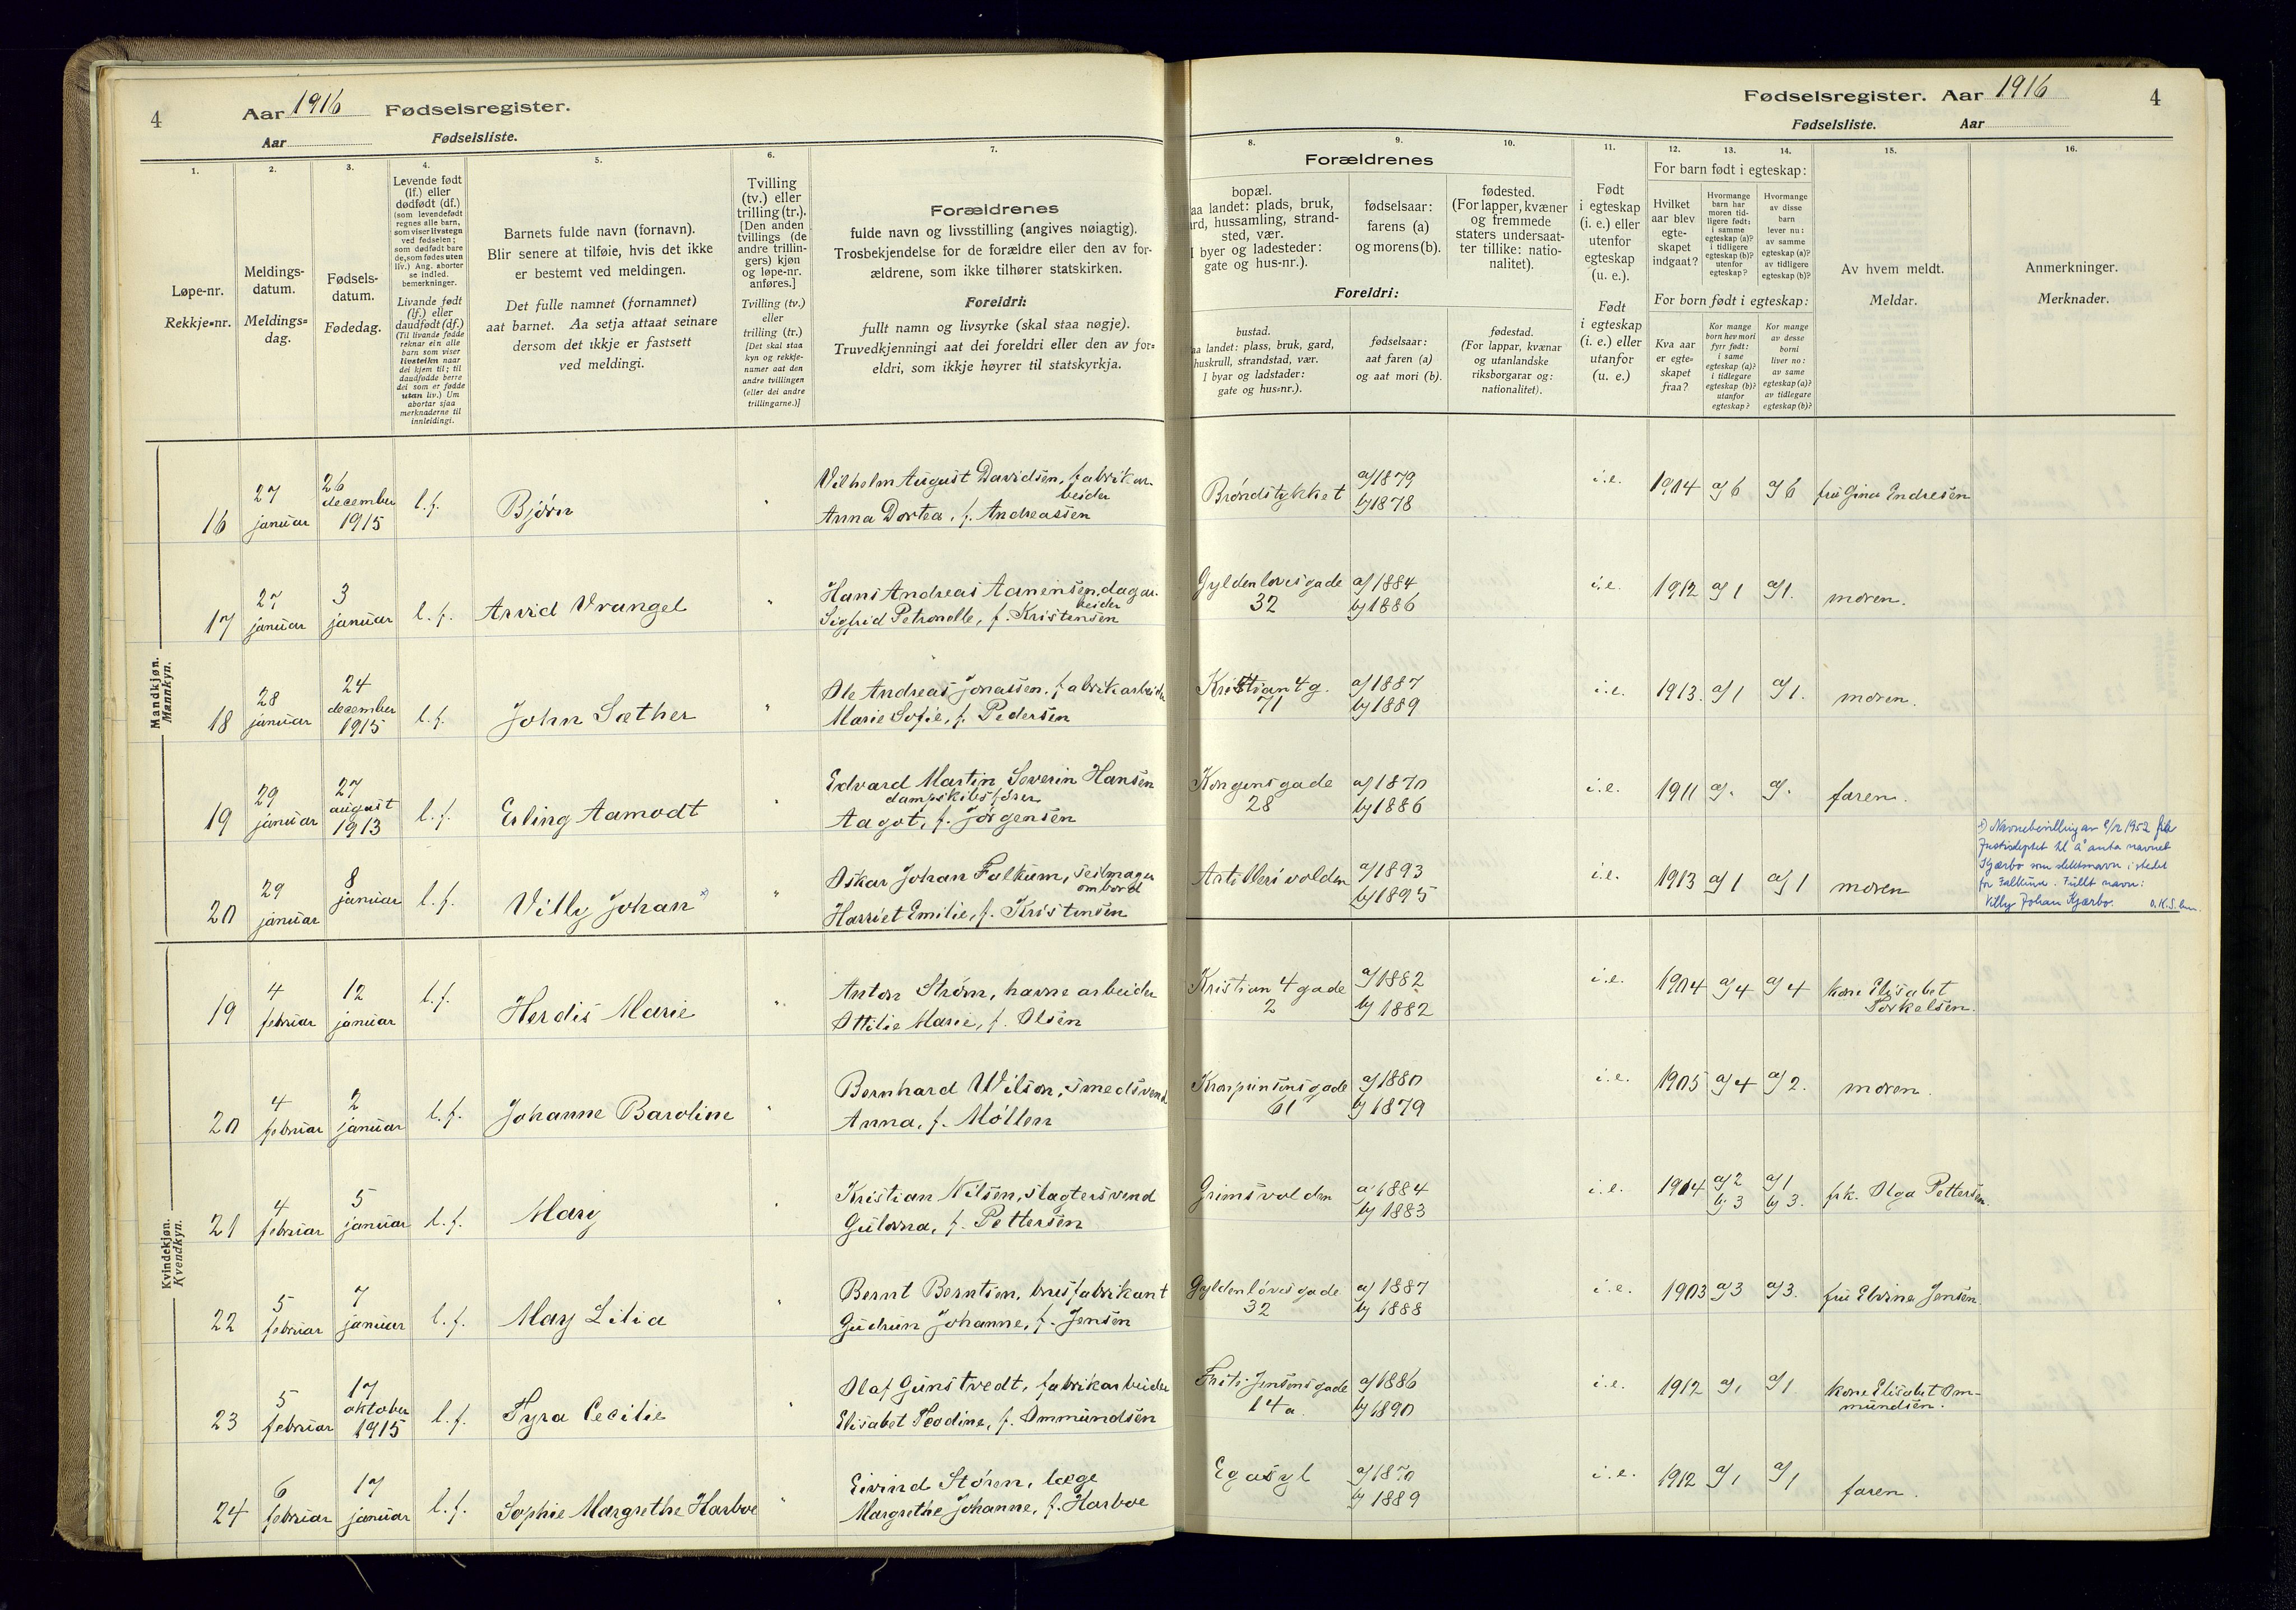 4
Aar 1916 Fødselsregister.
Aar Fødselsliste.
1.
Løpe-nr.
Rekkje-nr.
2.
Meldings-
datum.
Meldings-
dag.
3.
Fødsels-
datum.
Fødedag.
4.
Levende født
(lf.) eller
dødfødt (df.)
(som levendefødt
regnes alle barn,
som viser livstegn
ved fødselen;
som dødfødt bare
de, som fødes uten
liv.) Ang. aborter
se indled.
bemerkninger.
Livande født
(lf.) eller
daudfødt (df.)
(Til livande fødde
reknar ein alle
barn som viser
livsteikn naar
dei kjem til; til
daudfødde berre
dei som er fødde
utan liv.) Um
abortar sjaa
merknaderne til
innleidingi.
5.
Barnets fulde navn (fornavn).
Blir senere at tilføie, hvis det ikke
er bestemt ved meldingen.
Det fulle namnet (fornamnet)
aat barnet. Aa setja attaat seinare
dersom det ikkje er fastsett
ved meldingi.
6.
Tvilling
(tv.) eller
trilling (tr.).
[Den anden
tvillings (de
andre trillin-
gers) kjøn
og løpe-nr.
anføres.]
Tvilling (tv.)
eller
trilling (tr.)
[Det skal staa
kyn og rekkje-
namer aat den
andre tvillingen
(eller dei andre
trillingarne.)]
7.
Forældrenes
fulde navn og livsstilling (angives nøiagtig).
Trosbekjendelse for de forældre eller den av for-
ældrene, som ikke tilhører statskirken.
Foreldri:
fullt namn og livsyrke (skal staa nøgje).
Truvedkjenningi aat dei foreldri eller den av for-
eldri, som ikkje høyrer til statskyrkja.
Mandkjøn.
Mannkyn.
16
27
januar
26
december
1915
l.f.
Bjørn
"
Vilhelm August Davidsen, fabrikar-
beider
Anna Dortea, f. Andreassen
17
27
januar
3
januar
l.f.
Arvid Vrangel
"
Hans Andreas Aanensen, dagar-
beider
Sigfrid Petronelle, f. Kristensen
18
28
januar
24
december
1915
l.f.
John Sæther
"
Ole Andreas Jonassen, fabrikarbeider
Marie Sofie, f. Pedersen
19
29
januar
27
august
1913
l.f.
Erling Aamodt
"
Edvard Martin Severin Hansen
dampskibsfører
Aagot, f. Jørgensen
20
29
januar
8
januar
l.f.
Villy Johan x)
"
Oskar Johan Falkum, seilmager
ombord
Harriet Emilie, f. Kristensen
Kvindekjøn.
Kvendkyn.
19
4
februar
12
januar
l.f.
Herdis Marie
"
Anton Strøm, havnearbeider
Ottilie Marie, f. Olsen
20
4
februar
2
januar
l.f.
Johanne Baroline
"
Bernhard Wilson, smedsvend
Anna, f. Møller
21
4
februar
5
januar
l.f.
Mary
"
Kristian Nilsen, slagtersvend
Gulovna, f. Pettersen
22
5
februar
7
januar
l.f.
May Lilia
"
Bernt Berntsen, brusfabrikant
Gudrun Johanne, f. Jensen
23
5
februar
17
oktober
1915
l.f.
Tyra Cecilie
"
Olaf Gunstvedt, fabrikarbeider
Elisabet Teodine, f. Ommundsen
24
6
februar
17
januar
l.f.
Sophie Margrethe Harboe
"
Eivind Støren, læge
Margrethe Johanne, f. Harboe
Fødselsregister. Aar 1916
4
Fødselsliste. Aar
8.
Forældrenes
bopæl.
aa landet: plads, bruk,
rd, hussamling, strand-
sted, vær.
I byer og ladesteder:
gate og hus-nr.).
Foreldri:
bustad.
aa landet: plass, bruk, gard,
huskrull, strandstad, vær.
I byar og ladstader:
gate og hus-nr.).
9.
fødselsaar:
farens (a)
og morens (b).
fødselsaar:
aat faren (a)
og aat mori (b).
10.
fødested.
(For lapper, kvæner
og fremmede
staters undersaat-
ter tillike: natio-
nalitet).
fødestad.
(For lappar, kvænar
og utanlandske
riksborgarar og:
nationalitet).
11.
Født
i egteskap
(i. e.) eller
utenfor
egteskap
(u. e.).
Født
i egteskap
(i. e.) eller
utanfor
(u. e.)
12. 13. 14.
For barn født i egteskap:
Hvilket
aar blev
egte-
skapet
indgaat?
Hvormange
barn har
moren tid-
ligere født:
i samme
egteskap (a)?
i tidligere
egteskap (b)?
utenfor
egteskap?
Hvormange
av disse
barn
lever nu:
av samme
egteskap (a)?
av tidligere
egteskap (b)?
For born født i egteskap:
Kva aar
er egte-
skapet
fraa?
Kor mange
born hev mori
fyrr født:
i same
egteskap (a)?
i tidlegare
egteskap (b)?
utanfor
egteskap?
Kor mange
av desse
borni
liver no:
av same
egteskap (a)?
av tidlegare
egteskap (b)?
15.
Av hvem meldt.
Meldar.
16.
Anmerkninger.
Merknader.
Brøndstykket
a) 1879
b) 1878
i.e.
1904
a) 6
a) 6
fru Gina Endresen
Gyldenløvesgade
32
a) 1884
b) 1886
i.e.
1912
a) 1
a) 1.
moren.
Kristian 4 g.
71
a) 1887
b) 1889
i.e.
1913.
a) 1
a) 1.
moren.
Kongensgade
28
a) 1870
b) 1886
i.e.
1911
a) .
a) .
faren.
Artillerivolden
a) 1893
b) 1895
i.e.
1913
a) 1
a) 1
moren
x) Navnebevilling av 1952 fra
Justisdeptet til å anta navnet
Kjærbo som slektsnavn i stedet
for Falkum. Fullt navn:
Villy Johan Kjærbo. O.K.S.
Kristian 4 gade
2
a) 1882
b) 1882
i.e.
1904
a) 4
a) 4
kone Elisabet
Torkelsen.
Kronprinsensgade
61
a) 1880
b) 1879
i.e.
1905
a) 4
a) 2.
moren.
Grimsvolden
a) 1884
b) 1883
i.e.
1914
a) 2
b) 3
a) 1
b) 3.
frk. Olga Pettersen.
Gyldenløvesgade
32
a) 1887
b) 1888
i.e.
1903
a) 3
a) 3.
fru Elvine Jensen
Jensensgade
14a
a) 1886
b) 1890
i.e.
1912
a) 1
a) 1
kone Elisabet Om-
mundsen.
Eg asyl
a) 1870
b) 1889
i.e.
1912
a) 1
a) 1
faren.